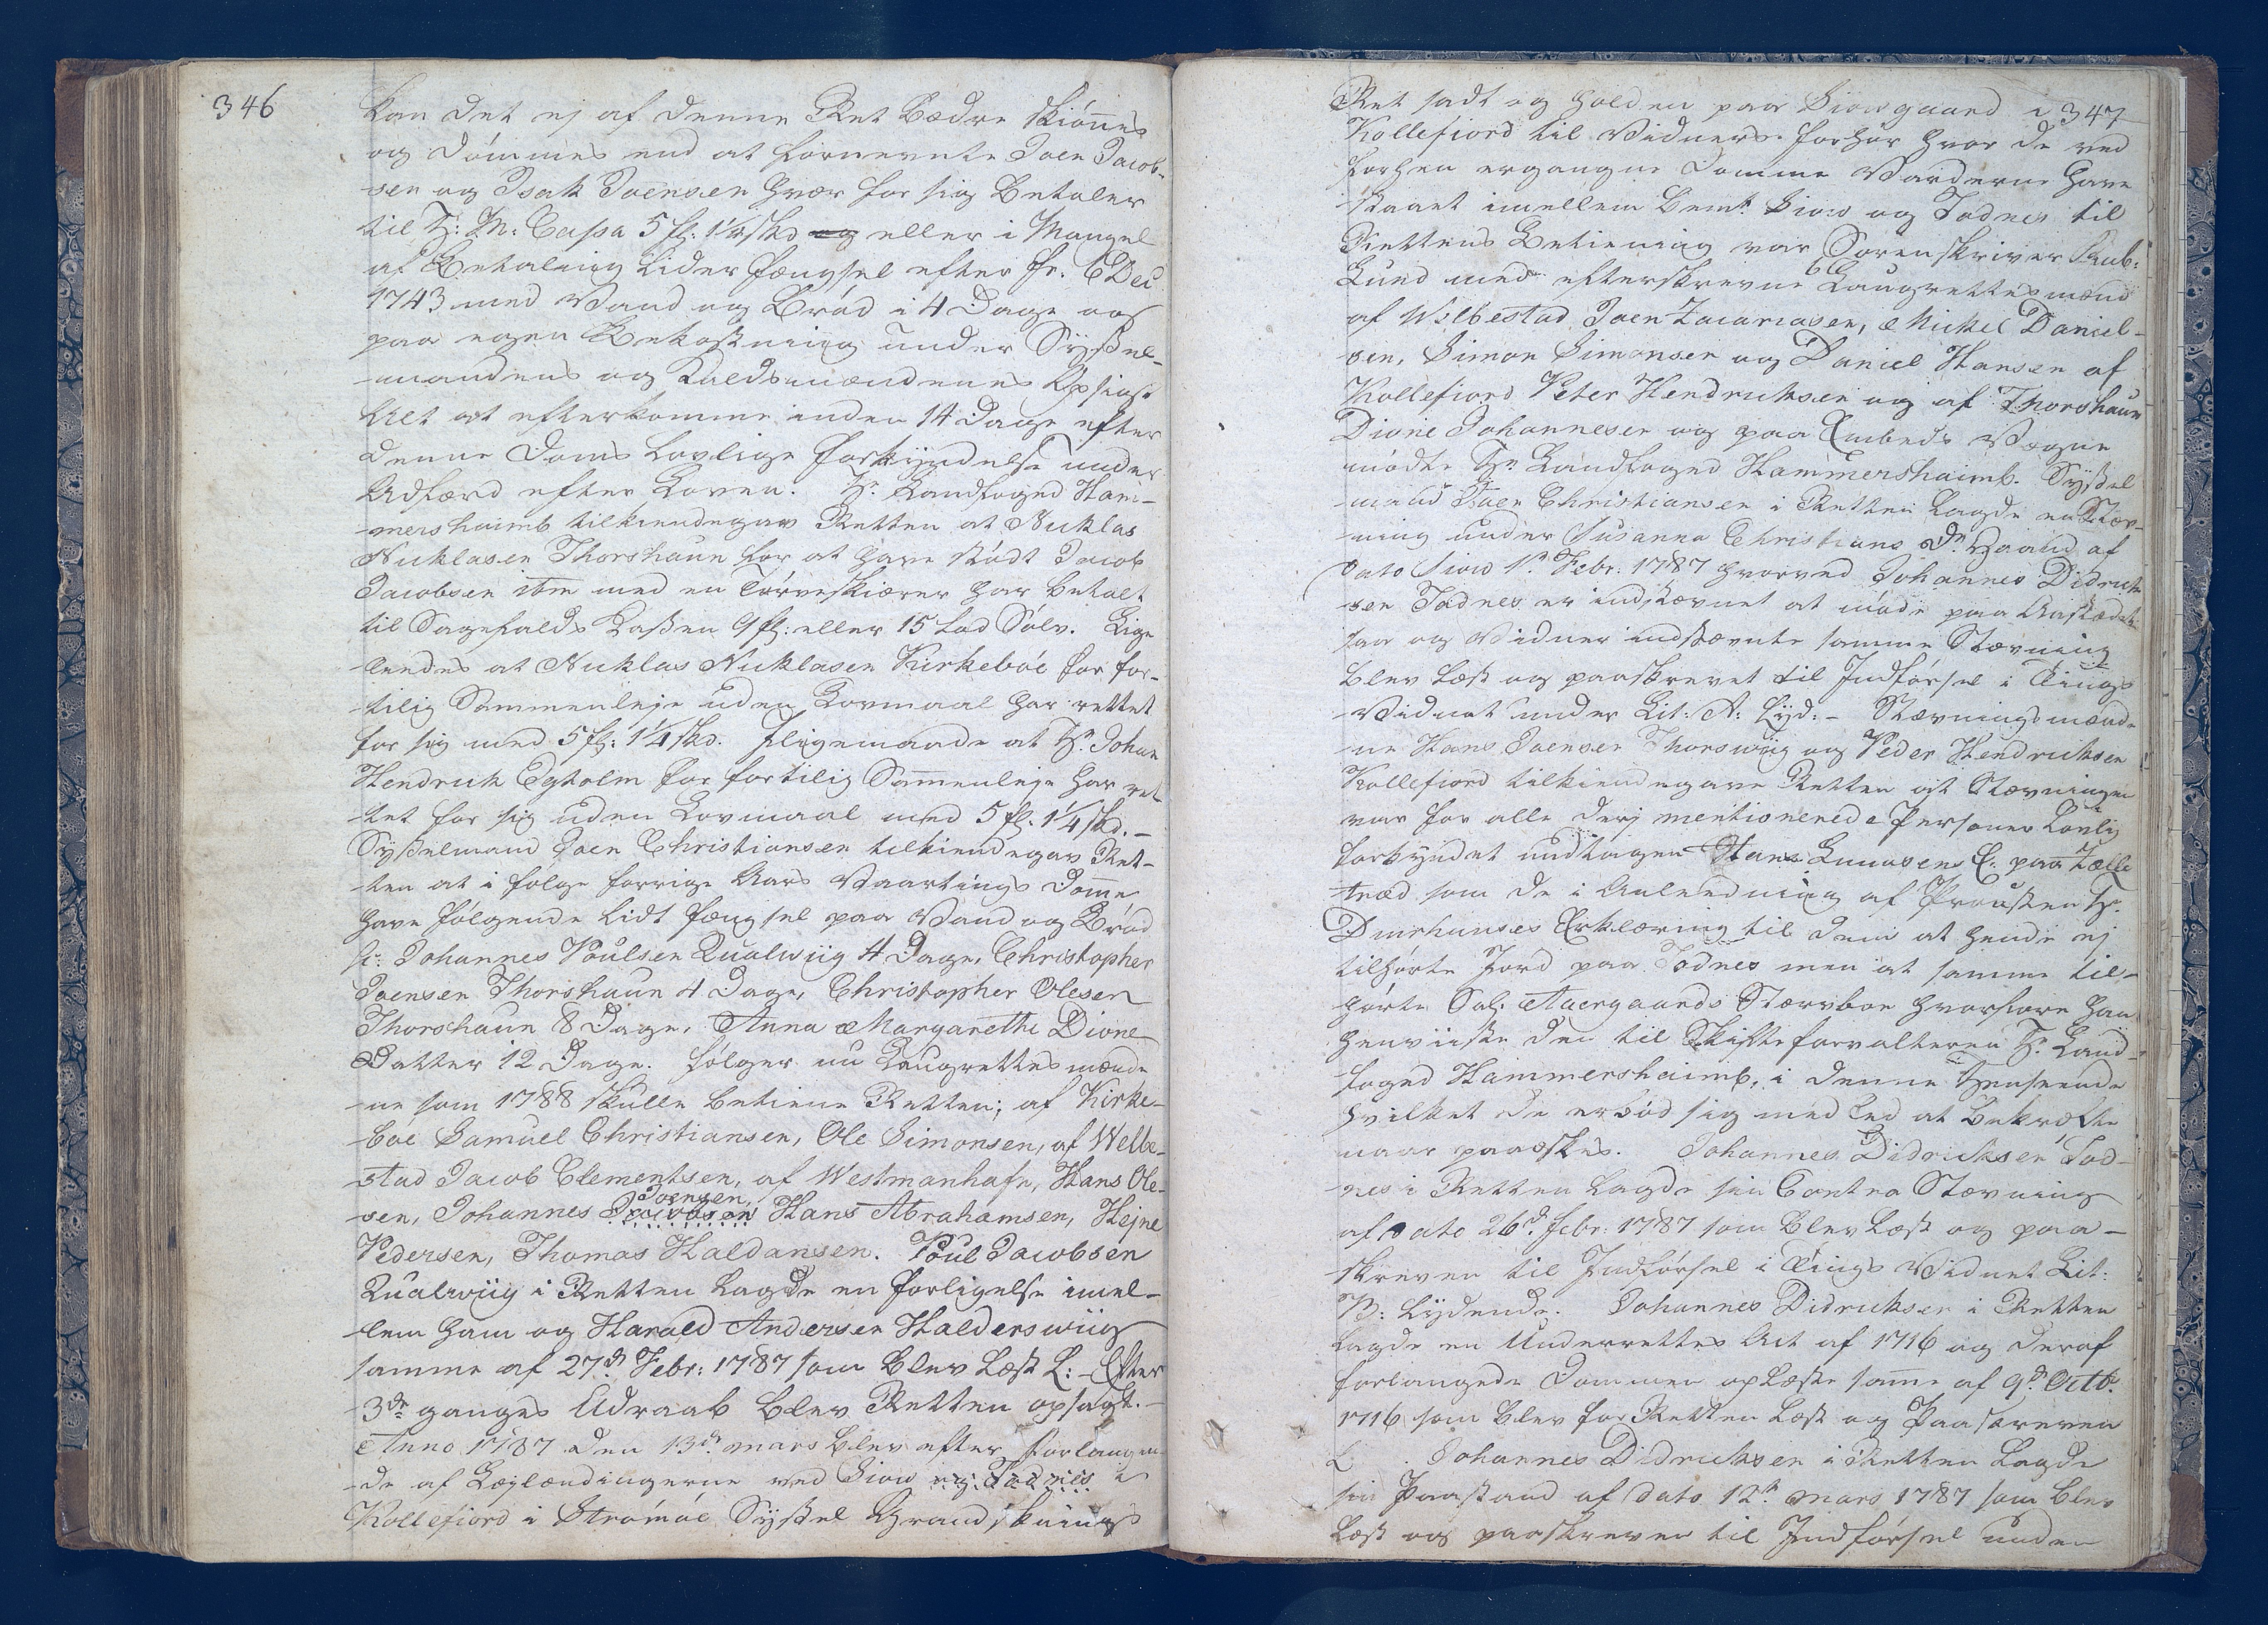 346
kan det ej af denne Ret Bedre skiönnes
og dömmes end at fornevnte Joen Jacob-
sen og Isak Joensen hver for sig Betaler
til H: M: Cassa 5 fl: 1¼ skd og eller i Mangel
af Betaling lider fængsel efter fr. 6 Dec
1743 med Vand og Bröd i 4 Dage og
paa egen Bekostning under Syssel-
-mandens og Kaldsmændenes Opsigt
Alt at efterkomme inden 14 Dage efter
denne Doms lovlige forkyndelse under
Adfærd efter Loven. Hr. Landfoged Ham-
-mershaimb tilkiendegav Retten at Nicklas
Nicklasen Thorshaun for at have stödt Jacob
Jacobsen ibm med en Törveskiærer har betalt
til Sagefalds Cassen 9 fl: eller 15 Lod Sölv. Lige-
-ledes at Nicklas Nicklasen Kirkeböe for for-
-tilig Sammenleje uden Lovmaal har rettet
for sig med 5 fl: 1¼ skd. Iligemaade at Hr. Johan
Hendrich Egholm for fortilig Samenleje har ret-
-tet for sig uden Lovmaal med 5 fl. 1¼ skd. -
Sysselmand Joen Christiansen tilkiendegav Ret-
-ten at i fölge forrige Aars Vaartings Domme
have fölgende lidt fængsel paa Vand og Bröd
sc: Johannes Poulsen Qualwiig 4 Dage, Christopher
Joensen Thorshaun 4 Dage, Christopher Olesen
Thorshaun 8 Dage, Anna Margarethe Dione
Datter 12 Dage. fölger nu Laugrettesmænde
-ne som 1788 skulle betiene Retten; af Kirke-
böe Samuel Christiansen, Ole Simonsen, af Welbe-
stad Jacob Clementsen, af Westmanhafn, Hans Ole-
sen, Johannes Jacobsen Joensen Hans Abrahamsen, Hejne
Pedersen, Thomas Haldansen. Poul Jacobsen
Qualwiig i Retten lagde en forligelse imel-
-lem ham og Harald Andersen Halderswiig
samme af 27d Febr: 1787 som blev læst L: - Efter
3de ganges Udraab blev Retten opsagt. -
Anno 1787 den 13de mars blev efter forlangen-
-de af Lægland​ingerne ved Siow og Todnes i
Kollefiord i Strömöe Syssel Grandsknings
347
Ret sadt og holden paa Siowgaard i
Kollefiord til Vidners forhör hvor de ved
forhen ergangne Domme Varderne have
staaet imellem bemt Siow og Todnes til
Rettens Betiening var Sorenskriver Rub:
Lund med efterskrevne 6 Laugrettesmænd
af Welbestad Joen Zacariasen, Mickel Daniel-
sen, Simon Simonsen og Daniel Hansen af
Kollefiord Peter Hendricksen og af Thorshaun
Dione Johannesen og paa Embeds Vegne
mödte Hr Landfoged Hammershaimb. Syssel
-mand Joen Christiansen i Retten lagde en Stæv-
-ning under Susanna Christians Dr. Haand af
Dato Siow 1te Febr: 1787 hvorved Johannes Didrich-
sen Todnes er indstævnet at möde paa Aastæde-
og Vidner indstævnte samme Stævning
blev læst og paaskrevet til Indförsel i Tings
Vidnet under Lit: A: Lyd: - Stævningsmænde-
ne Hans Joensen Thorswiig og Peder Hendricksen
Kollefiord tilkiendegave Retten at Stævningen
var for alle derj mentionerede Personer Lovlig
forkyndet undtagen Hans Lucasens E: paa Zelle
træd som de i Anledning af Prousten Hr.
Djurhuuses Erklæring til dem at hende ej
tilhörte Jord paa Todnes men at samme til-
hörte Sal: Aaergaards Stervboe hvorfore han
henviiste den til Skifteforvalteren Hr. Land-
foged Hammershaimb, i denne Henseende
hvilket de erböd sig med Eed at bekræfte
naar paaæskes. Johannes Didricksen Tod-
nes i Retten lagde sin Contra Stævning
af Dato 26d. febr: 1787 som blev læst og paa-
skreven til Indförsel i Tings Vidnet Lit:
B: Lydende. Johannes Didricksen i Retten
lagde en Underrettes Act af 1716 og deraf
forlangede Dommen oplæste samme af 9d. Octb:
1716 som blev for Retten læst og Paaskreven
L . Johannes Didricksen i Retten lagde
sin Paastand af Dato 12te mars 1787 som blev
læst og paaskreven til Indförsel under